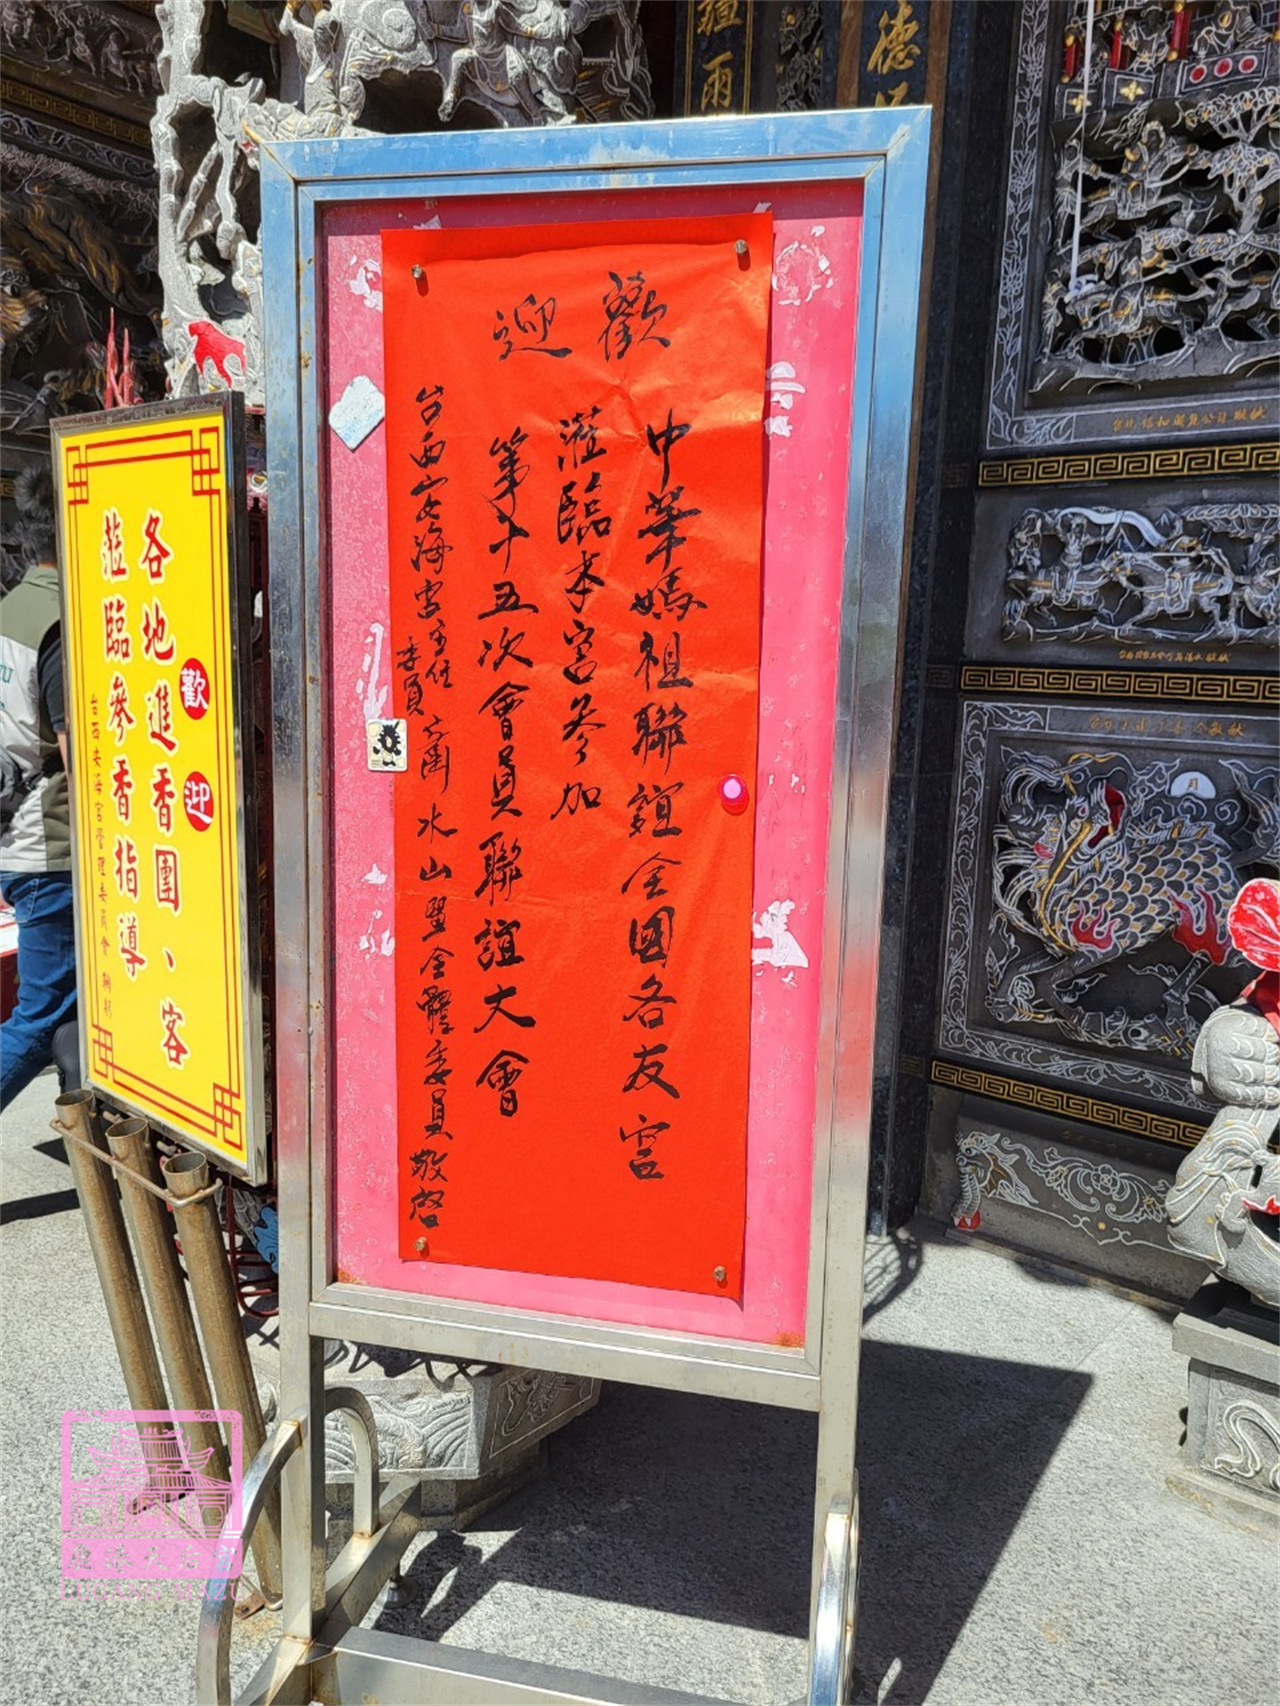 歡迎
中華媽祖聯誼全國各友宮
蒞臨本宮參加
第十五次會員聯誼大會
台西安海宮主任
委員
水山暨全體委員敬啓
歡迎
各地進香團、客
蒞臨參香指導
台西安海宮管理委員會
雨
德
月
鹿港天后宮
LUGANG MAZU